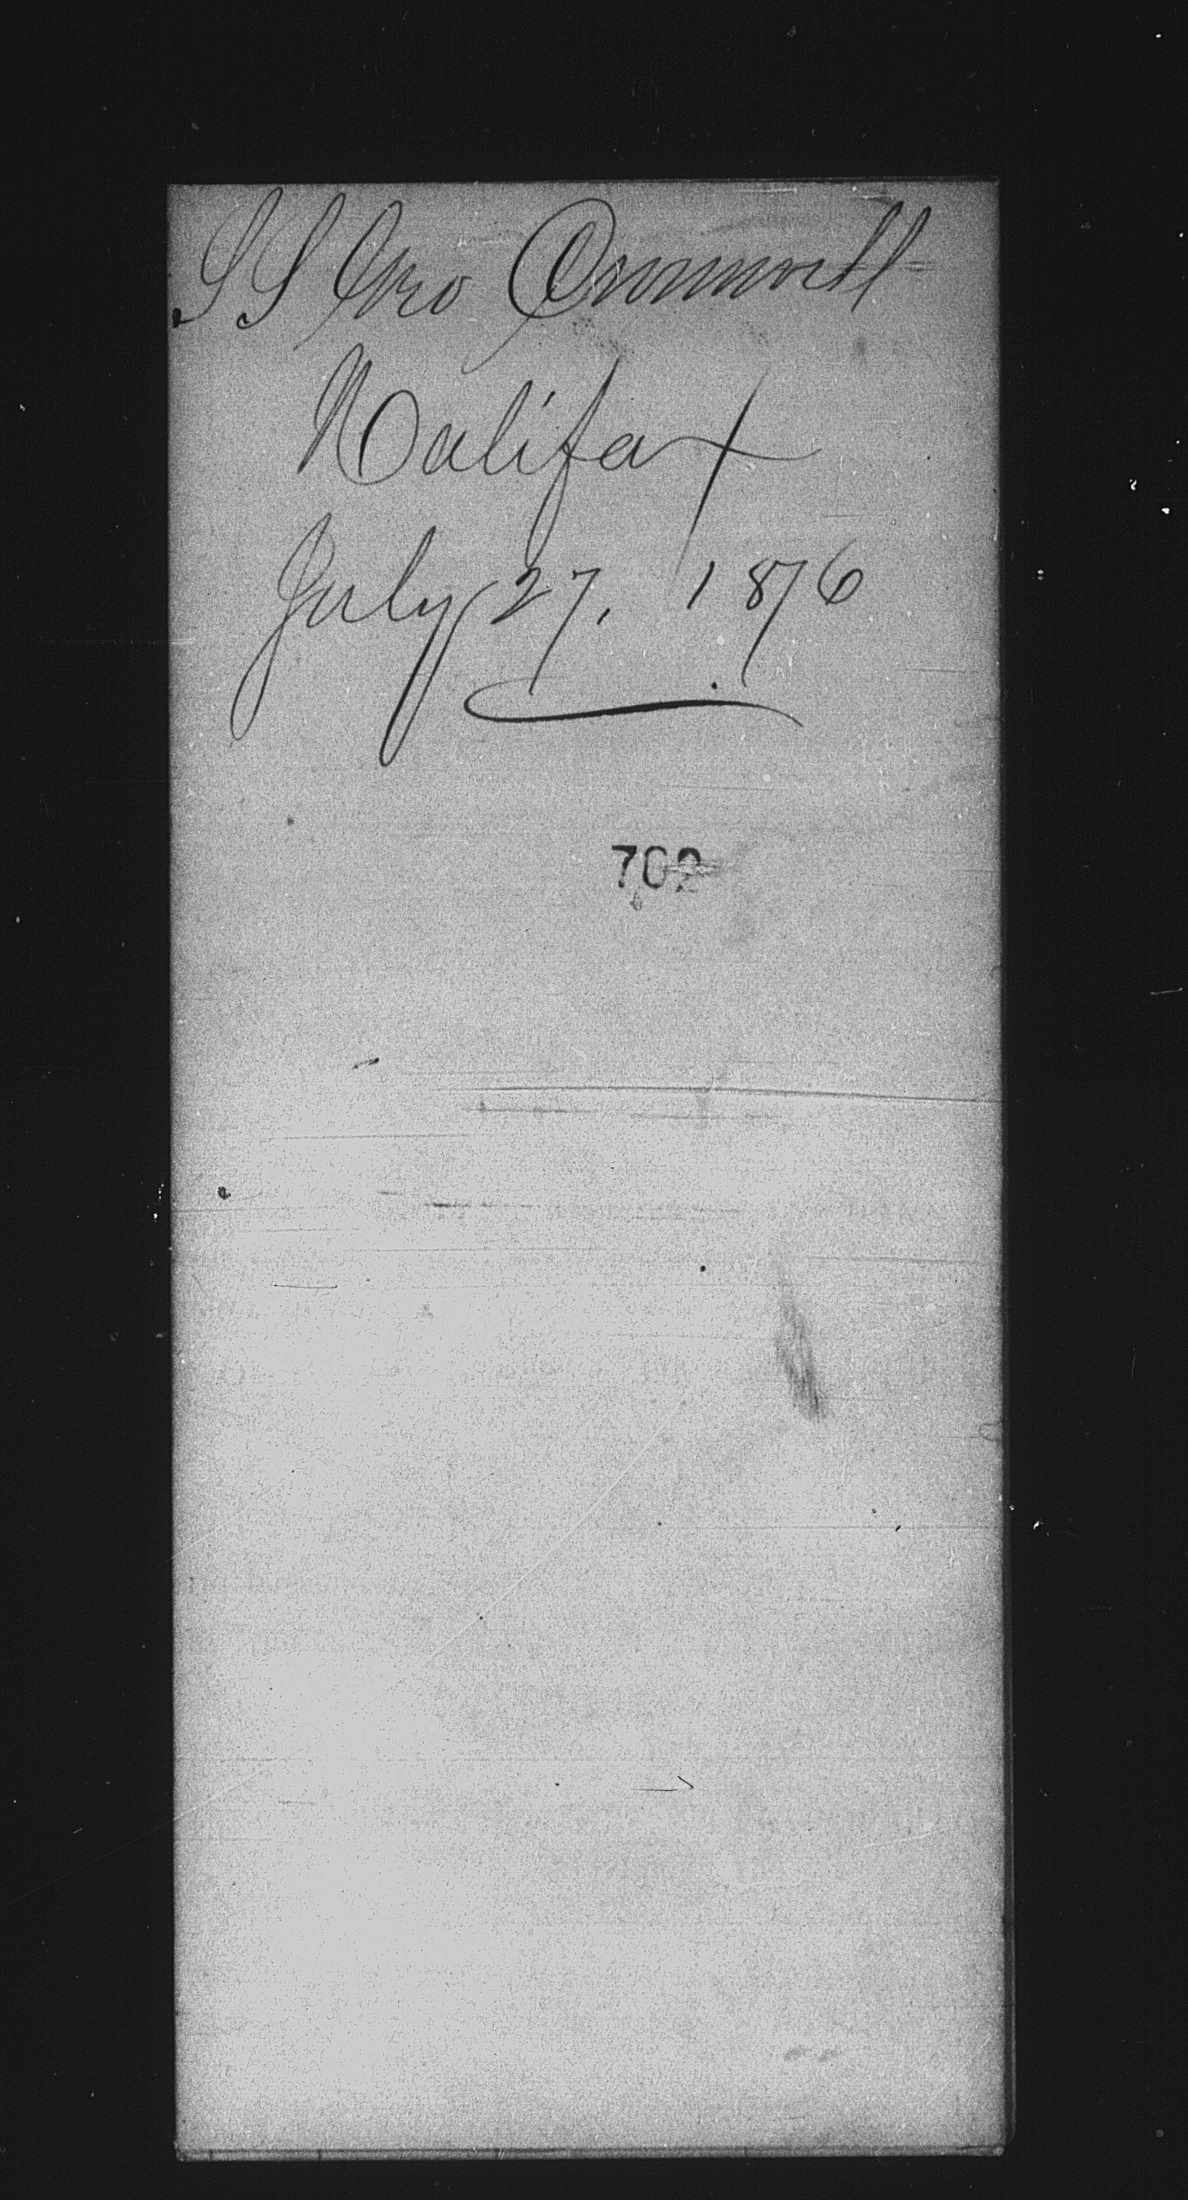 SS Geo Cromwell
Halifax
July 27, 1876
702